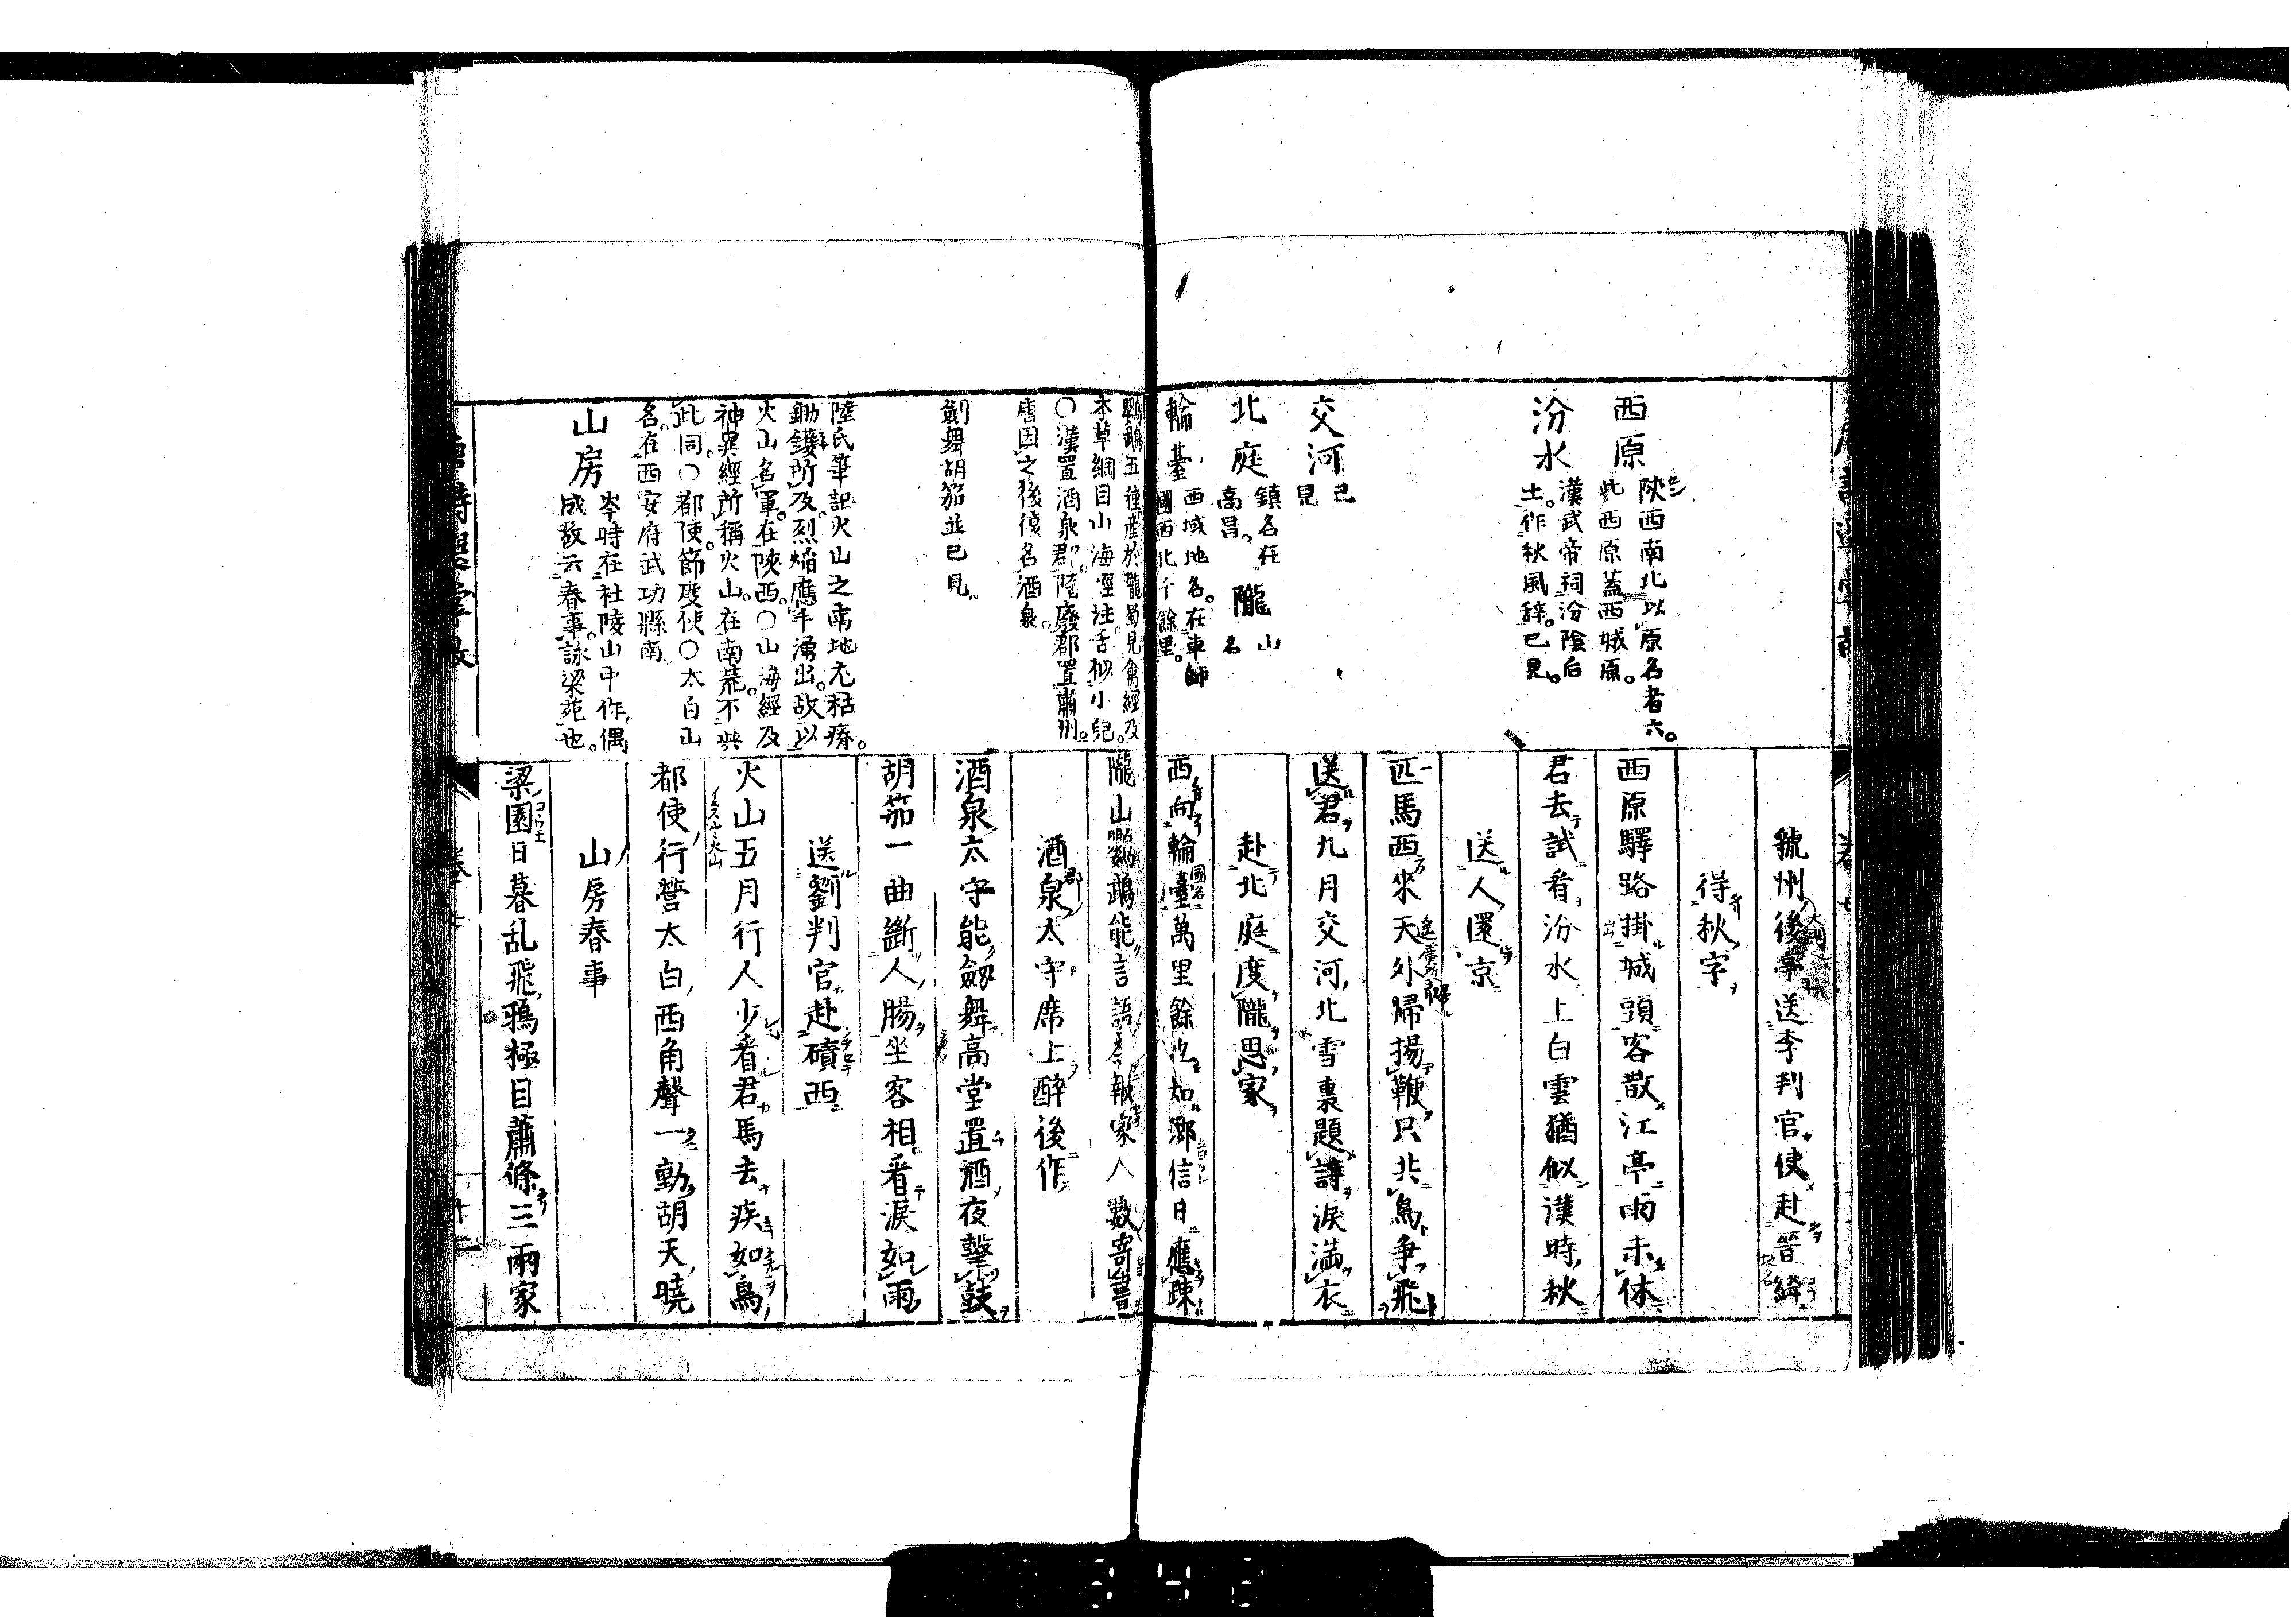 西原
陝西南北以原名者六。
此西原蓋西城原。
汾水
漢武帝祠汾陰后
土。作秋風辞。已見。
交河
已
見
北庭
鎮名在
高昌。
隴
山
名
輪臺
西域地名。在車師
國西北千餘里。
虢州後亭送李判官使赴晉絳
得秋字
西原驛路掛城頭客散江亭雨未休
君去試看汾水上白雲猶似漢時秋
送人還京
匹馬西來天外歸揚鞭只共鳥爭飛
送君九月交河北雪裏題詩淚滿衣
赴北庭度隴思家
西向輪臺萬里餘也知鄉信日應疎
鸚鵡五種産於隴蜀見禽經及
本草綱目山海經注舌似小兒。
○漢置酒泉郡。隋廢郡置肅州。
唐因之後復名酒泉。
劍舞胡笳並已見。
陸氏筆記火山之南地尤枯瘠。
鋤钁所及烈焔應手湧出。故以
火山名軍。在陝西。○山海經及
神異經所稱火山。在南荒。不與
此同。○都使。節度使○太白山
名。在西安府武功縣南
山房
岑時在杜陵山中作。偶
成敌云春事。詠梁苑也。
隴山鸚鵡能言語爲報家人數寄書
酒泉太守席上醉後作
酒泉太守能劔舞高堂置酒夜擊鼓
胡笳一曲斷人腸坐客相看淚如雨
送劉判官赴磧西
火山五月行人少看君馬去疾如鳥
都使行營太白西角聲一動胡天曉
山房春事
梁園日暮乱飛鴉極目蕭條三兩家